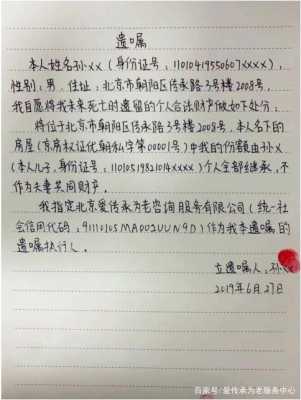 遗嘱
本人姓名孙xx（身份证号：11010419550607xxxx），
性别：男，住址：北京市朝阳区传承路3号楼2008号，
我自愿将我未来死亡的遗留的个人合法财产做如下处分：
将位于北京市朝阳区传承路3号楼2008号，本人名下的
房屋（京房权证优朝私字第00001号）中我的份额由孙x
（本人儿子，身份证号：11010519821014xxxx）个人全部继承，不
作为夫妻共同财产。
我指定北京爱传承为老咨询服务有限公司（统一社
会信用代码：91110105MA002UUN9D）作为我本遗嘱的
遗嘱执行人。
立遗嘱人：孙xx
2019年6月27日
百家号/爱传承为老服务中心